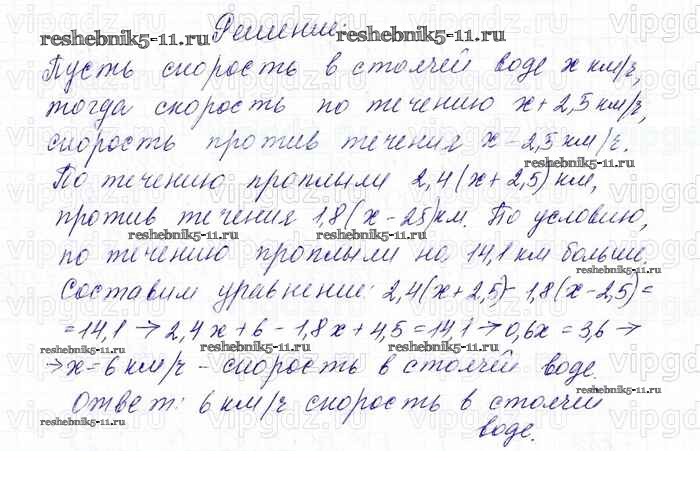 Решение:
reshebnik5-11.ru reshebnik5-11.ru
Пусть скорость в стоячей воде x км/ч,
тогда скорость по течению x+2,5 км/ч,
скорость против течения x-2,5 км/ч.
reshebnik5-11.ru
По течению проплыли 2,4(x+2,5) км,
против течения 1,8(x-25)км. По условию,
reshebnik5-11.ru reshebnik5-11.ru
по течению проплыли на 14,1 км больше.
reshebnik5-11.ru
Составим уравнение: 2,4(x+2,5)-1,8(x-2,5)=
=14,1 → 2,4x+6-1,8x+4,5=14,1 → 0,6x=3,6 →
reshebnik5-11.ru reshebnik5-11.ru reshebnik5-11.ru
→ x=6 км/ч - скорость в стоячей воде.
reshebnik5-11.ru
Ответ: 6 км/ч скорость в стоячей
reshebnik5-11.ru
воде.